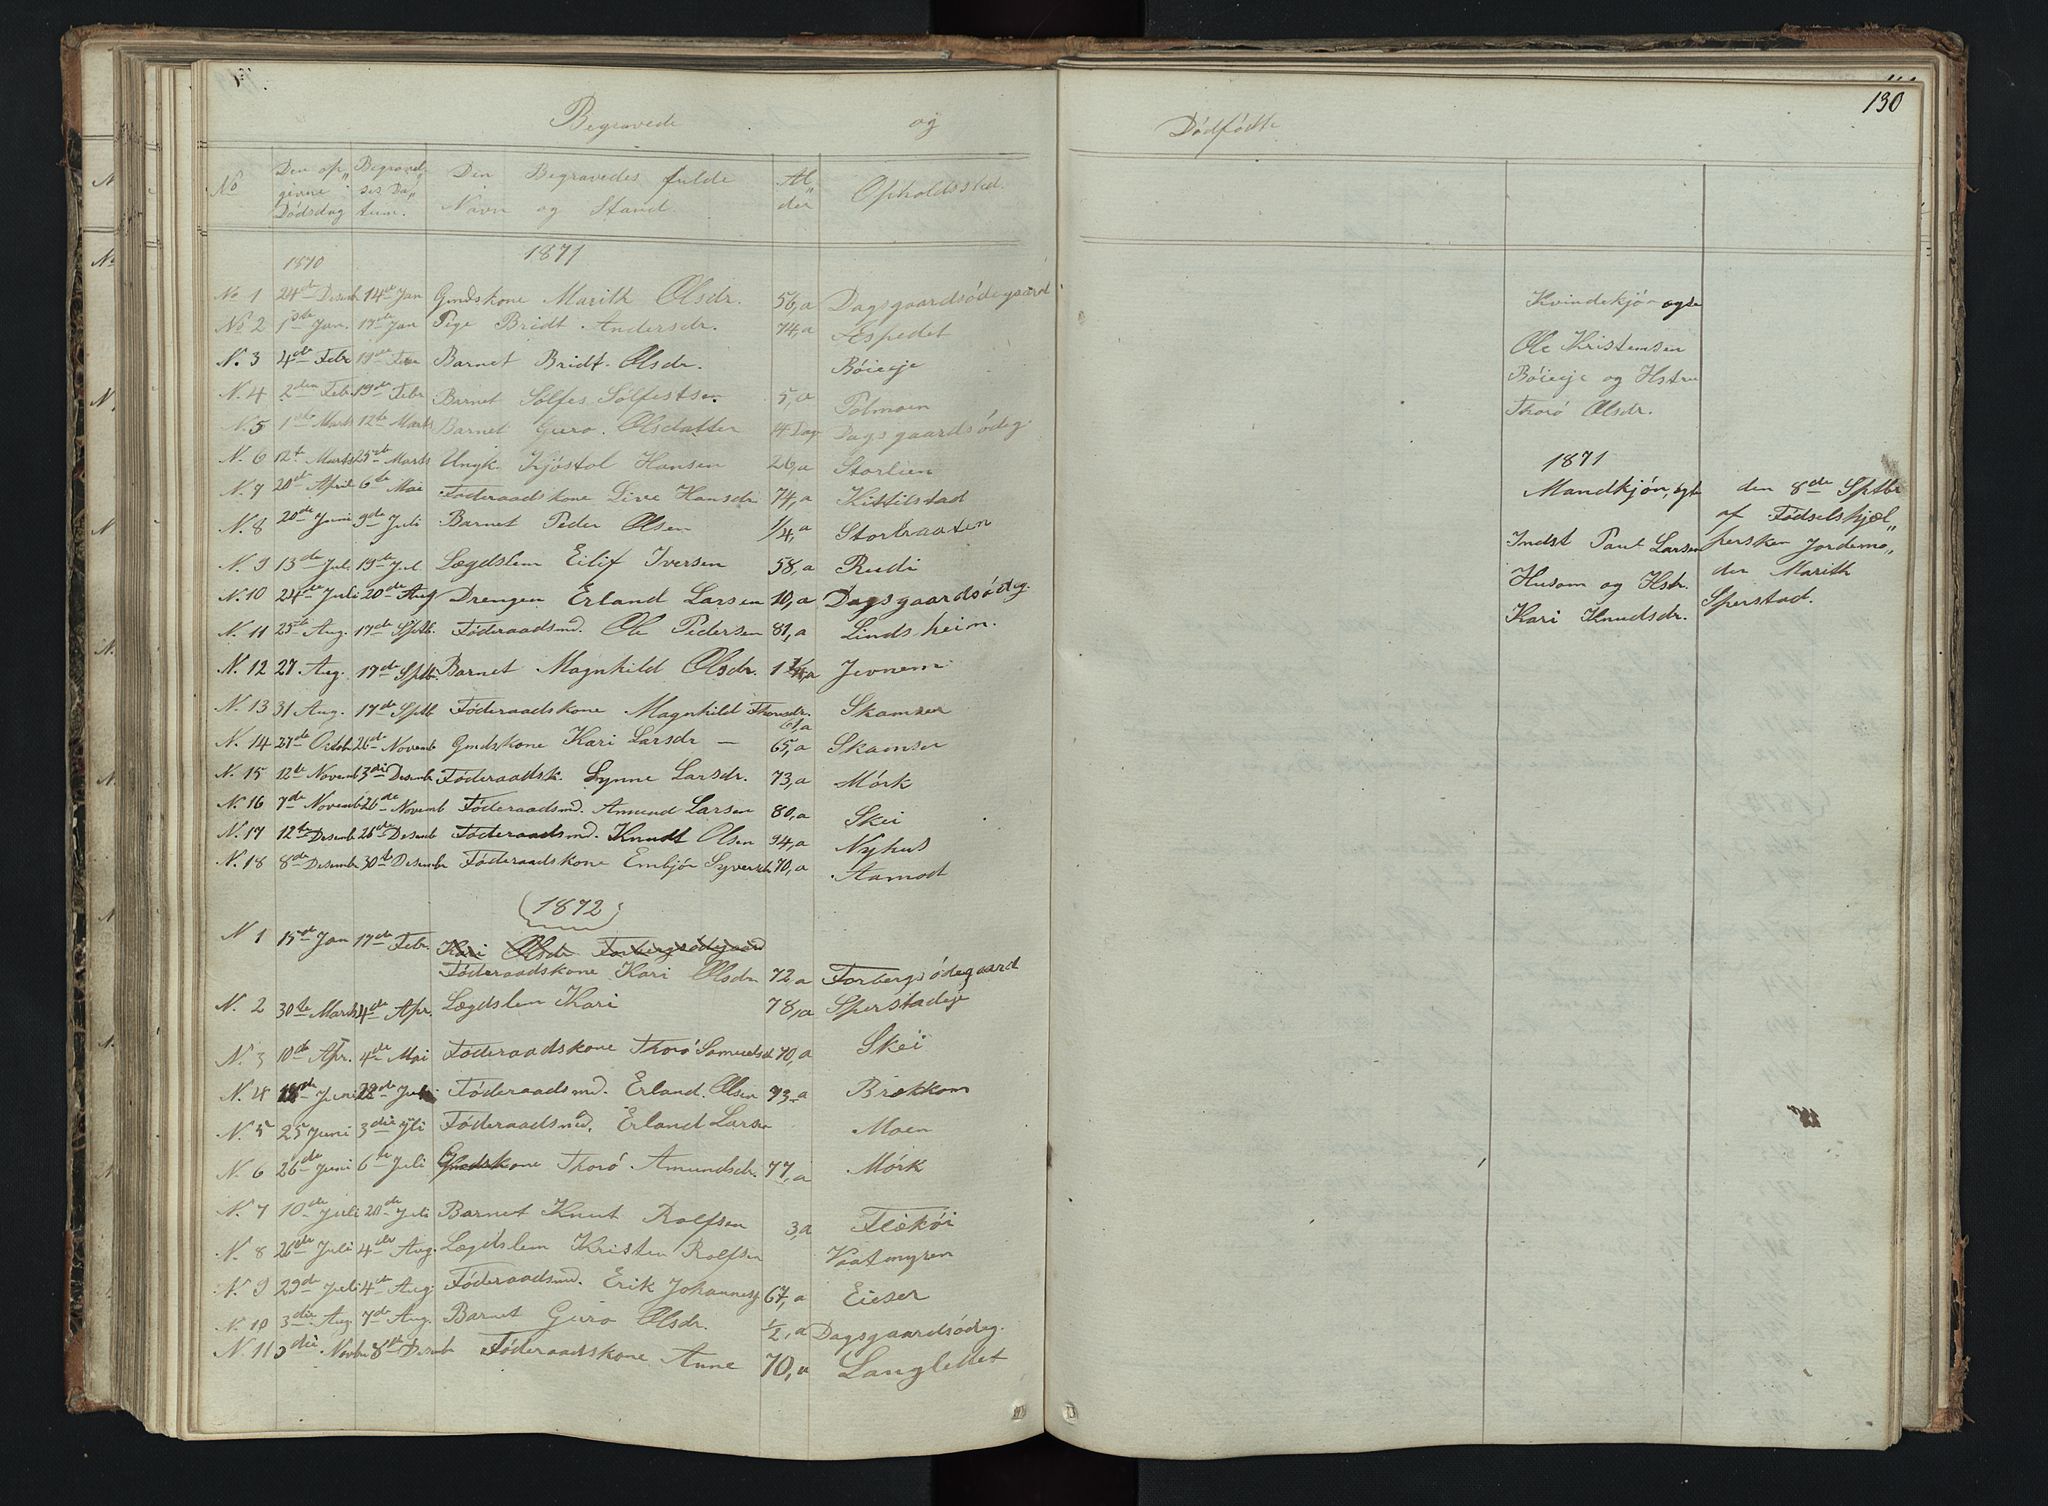 Begravede og
No Den op„ Begravel„ Den Begravedes fulde Al„ Opholdssted.
givne ses Da„ Navn og Stand. der
Dödsdag tum.
1870 1871
No 1 24de Desemb 14de Jan Gmdskone Marith Olsdr. 56,a Dagsgaardsödegaard
No 2 1ste Jan. 17de Jan Pige Bridt Andersdr. 74,a Æspedet
N. 3 4de Febr 19de Barnet Bridt. Olsdr. Böieeje
N. 4 2den Febr 19de Febr Barnet Solfes Solfestsen 5,a Polmoen
N. 5 1ste Marts 12te Marts Barnet Guro. Olsdatter 14 Dag Dagsgaardsödeg.
N. 6 12te Marts 25de Marts Ungk. Kjöstol Hansen 26,a Storlien
N. 7 20de April 6te Mai Föderaadskone Live Hansdr 74,a Kittilstad
N. 8 20de Juni 9de Juli Barnet Peder Olsen 1/4,a Stortraaten
N. 9 13de Jul. 19de Jul Lægdslem Eilif Iversen 58,a Rudi
N. 10 24de Juli 20de Aug Drengen Erland Larsen 10,a Dagsgaardsödeg.
N. 11 25de Aug. 17de Sptb. Föderaadsmd. Ole Pedersen 81,a Lindsheim.
N. 12 27 Aug. 17de Sptb. Barnet Magnhild Olsdr. 1 Jevnem
N. 13 31 Aug. 17de Sptb Föderaadskone Magnhild Thorsdr. 61,a Skamser
N. 14 27de Octob 26de Novemb Gmdskone Kari Larsdr — 65,a Skamser
N. 15 12te Novemb 3die Desemb Föderaadsk. Synne Larsdr. 73,a Mörk
N. 16 7de Novemb 26de Novemb Föderaadsmd. Amund Larsen 80,a Skei
N. 17 12te Desemb 26de Desemb Föderaadsmd. Knudt Olsen 94,a Nyhus
N. 18 8de Desemb 30te Desemb Föderaadskone Embjör Syversdr 70,a Aamodt
1872
N. 1 15de Jan 17de Febr. Kari Olsdr Forbergsödegaard
Föderaadskone Kari Olsdr 72 a Forbergsödegaard
N. 2 30te Marts 4de Apr. Lægdslem Kari 78,a Sperstadeje
N. 3 10de Apr. 4de Mai Föderaadskone Thorö Samuelsd 70,a Skei
N. 4 Juni 22de Juli Föderaadsmd. Erland. Olsen 73,a Brekkom
N. 5 25 Juni 3die Juli Föderaadsmd. Erland Larsen Moen
N. 6 26de Juni 6te Juli Gmdskone Thorö Amundsdr. 77,a Mörk
N. 7 10de Juli 20de Juli Barnet Knut Rolfsen 3,a Fleköi
N. 8 26de Juli 4de Aug. Lægdslem Kristen Rolfsen Vaatmyren
N. 9 29de Juli 4de Aug. Föderaadsmd. Erik Johannes 67,a Eieser
N. 10 3die Aug 7de Aug. Barnet Guro Olsdr. 1/2,a Dagsgaardsödeg.
N. 11 3die Novbr 8de Desemb Föderaadskone Anne 70,a Langlettet
130
Dödfödte
Kvindekjön ægte
Ole Kristensen
Böieeje og Hstru
Thorö Olsdr.
1871
Mandkjön, ægte den 8de Sptbr
af Födselshjæl„
Indst Paul Larsen persken Jordemo„
Husom og Hstr. der Marith
Kari Knudsdr. Sperstad.